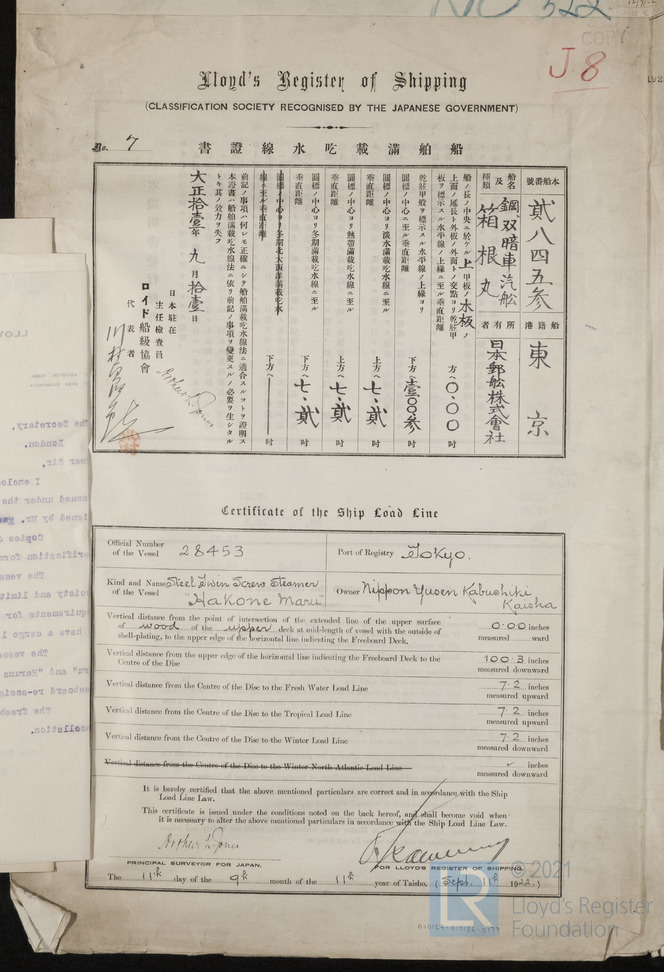 RIO 522
COPY
J.8
Lloyd's Register of Shipping
(CLASSIFICATION SOCIETY RECOGNISED BY THE JAPANESE GOVERNMENT)
No. 7
書證線水吃載滿舶船
本船番號
貳八四五參
船籍港
東京
船名及種類
鋼双暗車汽舩
箱根丸
所有者
日本郵舩株式會社
船ノ長ノ中央ニ於ケル上甲板ノ木板ノ
上面ノ延長ト外板ノ外面トノ交點ヨリ乾舷甲
板ヲ標示スル水平線ノ上緣ニ至ル垂直距離
方へ 〇.〇〇 吋
乾舷甲板ヲ標示スル水平線ノ上緣ヨリ
圓標ノ中心ニ至ル垂直距離
下方へ 壹〇〇.參 吋
圓標ノ中心ヨリ淡水滿載吃水線ニ至ル
垂直距離
上方へ 七.貳 吋
圓標ノ中心ヨリ熱帶滿載吃水線ニ至ル
垂直距離
上方へ 七.貳 吋
圓標ノ中心ヨリ冬期滿載吃水線ニ至ル
垂直距離
下方へ 七.貳 吋
圓標ノ中心ヨリ冬期北大西洋滿載吃水
線ニ至ル垂直距離
下方へ 吋
前記ノ事項ハ何レモ正確ニシテ船舶滿載吃水線法ニ適合スルコトヲ證明ス
本證書ハ船舶滿載吃水線法ニ依リ前記ノ事項ヲ變更スルノ必要ヲ生シタル
トキ其ノ效力ヲ失フ
大正拾壹年九月拾壹日
日本駐在
主任檢查員
Arthur L. Jones
ロイド船級協會
代表者
Certificate of the Ship Load Line
Official Number
of the Vessel 28453
Port of Registry Tokyo.
Kind and Name Steel Twin Screw Steamer
of the Vessel "Hakone Maru"
Owner Nippon Yusen Kabushiki
Kaisha
Vertical distance from the point of intersection of the extended line of the upper surface
of wood of the upper deck at mid-length of vessel with the outside of
shell-plating, to the upper edge of the horizontal line indicating the Freeboard Deck.
0.00 inches
measured ward
Vertical distance from the upper edge of the horizontal line indicating the Freeboard Deck to the
Centre of the Disc
100.3 inches
measured downward
Vertical distance from the Centre of the Disc to the Fresh Water Load Line
7.2 inches
measured upward
Vertical distance from the Centre of the Disc to the Tropical Load Line
7.2 inches
measured upward
Vertical distance from the Centre of the Disc to the Winter Load Line
7.2 inches
measured downward
Vertical distance from the Centre of the Disc to the Winter North Atlantic Load Line
inches
measured downward
It is hereby certified that the above mentioned particulars are correct and in accordance with the Ship
Load Line Law.
This certificate is issued under the conditions noted on the back hereof, and shall become void when
it is necessary to alter the above mentioned particulars in accordance with the Ship Load Line Law.
Arthur L. Jones
PRINCIPAL SURVEYOR FOR JAPAN.
FOR LLOYD'S REGISTER OF SHIPPING.
The 11th day of the 9th month of the 11th year of Taisho. (Sept. 11th 1922.)
LR
© 2021
Lloyd's Register
Foundation
The Secretary,
London.
Dear Sir,
I enclo
ssued under the
signed by Mr.
Copies o
erification form
The vess
ociety and limit
equirements for
have a cargo l
The vesse
ru" and "Haruna
eeboard re-assig
The freeb